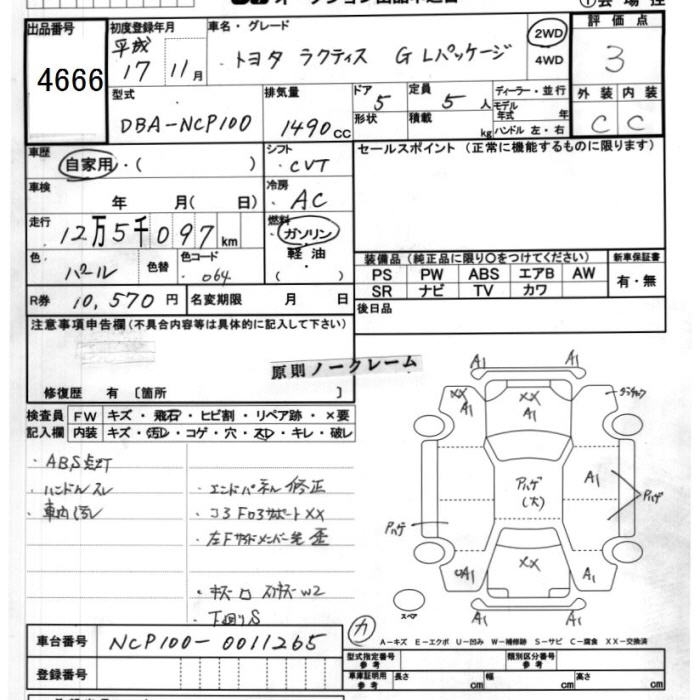 出品番号
4666
初度登録年月
平成 17 11月
車名・グレード
トヨタ ラクティス G Lパッケージ
2WD
4WD
評価点
3
型式
DBA-NCP100
排気量
1490cc
ドア 5
定員 5人
形状
積載 kg
ディーラー・並行
モデル年式 年
ハンドル 左・右
外装 内装
C C
車歴
自家用・( )
シフト
・CVT
セールスポイント (正常に機能するものに限ります)
車検
年 月( 日)
冷房
・AC
走行
12万5千097km
燃料
・ガソリン・
軽油
・( )
色
パール
色替
色コード
・064
装備品 (純正品に限り〇をつけてください)
新車保証書
PS PW ABS エアB AW
SR ナビ TV カワ
有・無
R券 10,570円
名変期限 月 日
後日品
注意事項申告欄(不具合内容等は具体的に記入して下さい)
原則ノークレーム
修復歴 有 〔箇所 〕
検査員 FW キズ・飛石・ヒビ割・リペア跡・×要
記入欄 内装 キズ・汚レ・コゲ・穴・スレ・キレ・破レ
・ABS点灯
・ハンドルスレ
・車内汚レ
・エンドパネル修正
・コア FロアサポートXX
・左Fサイドメンバー先 歪
・下回りS
A1 A1
XX A1
XX A1
A1
アハゲ(大)
A1
アハゲ
アハゲ
XX
A1
A1 A1
スペア
カ
A-キズ E-エクボ U-凹み W-補修跡 S-サビ C-腐食 XX-交換済
車台番号 NCP100-0011265
型式指定番号 参考
類別区分番号 参考
登録番号
車庫証明用 参考
長さ cm 幅 cm 高さ cm